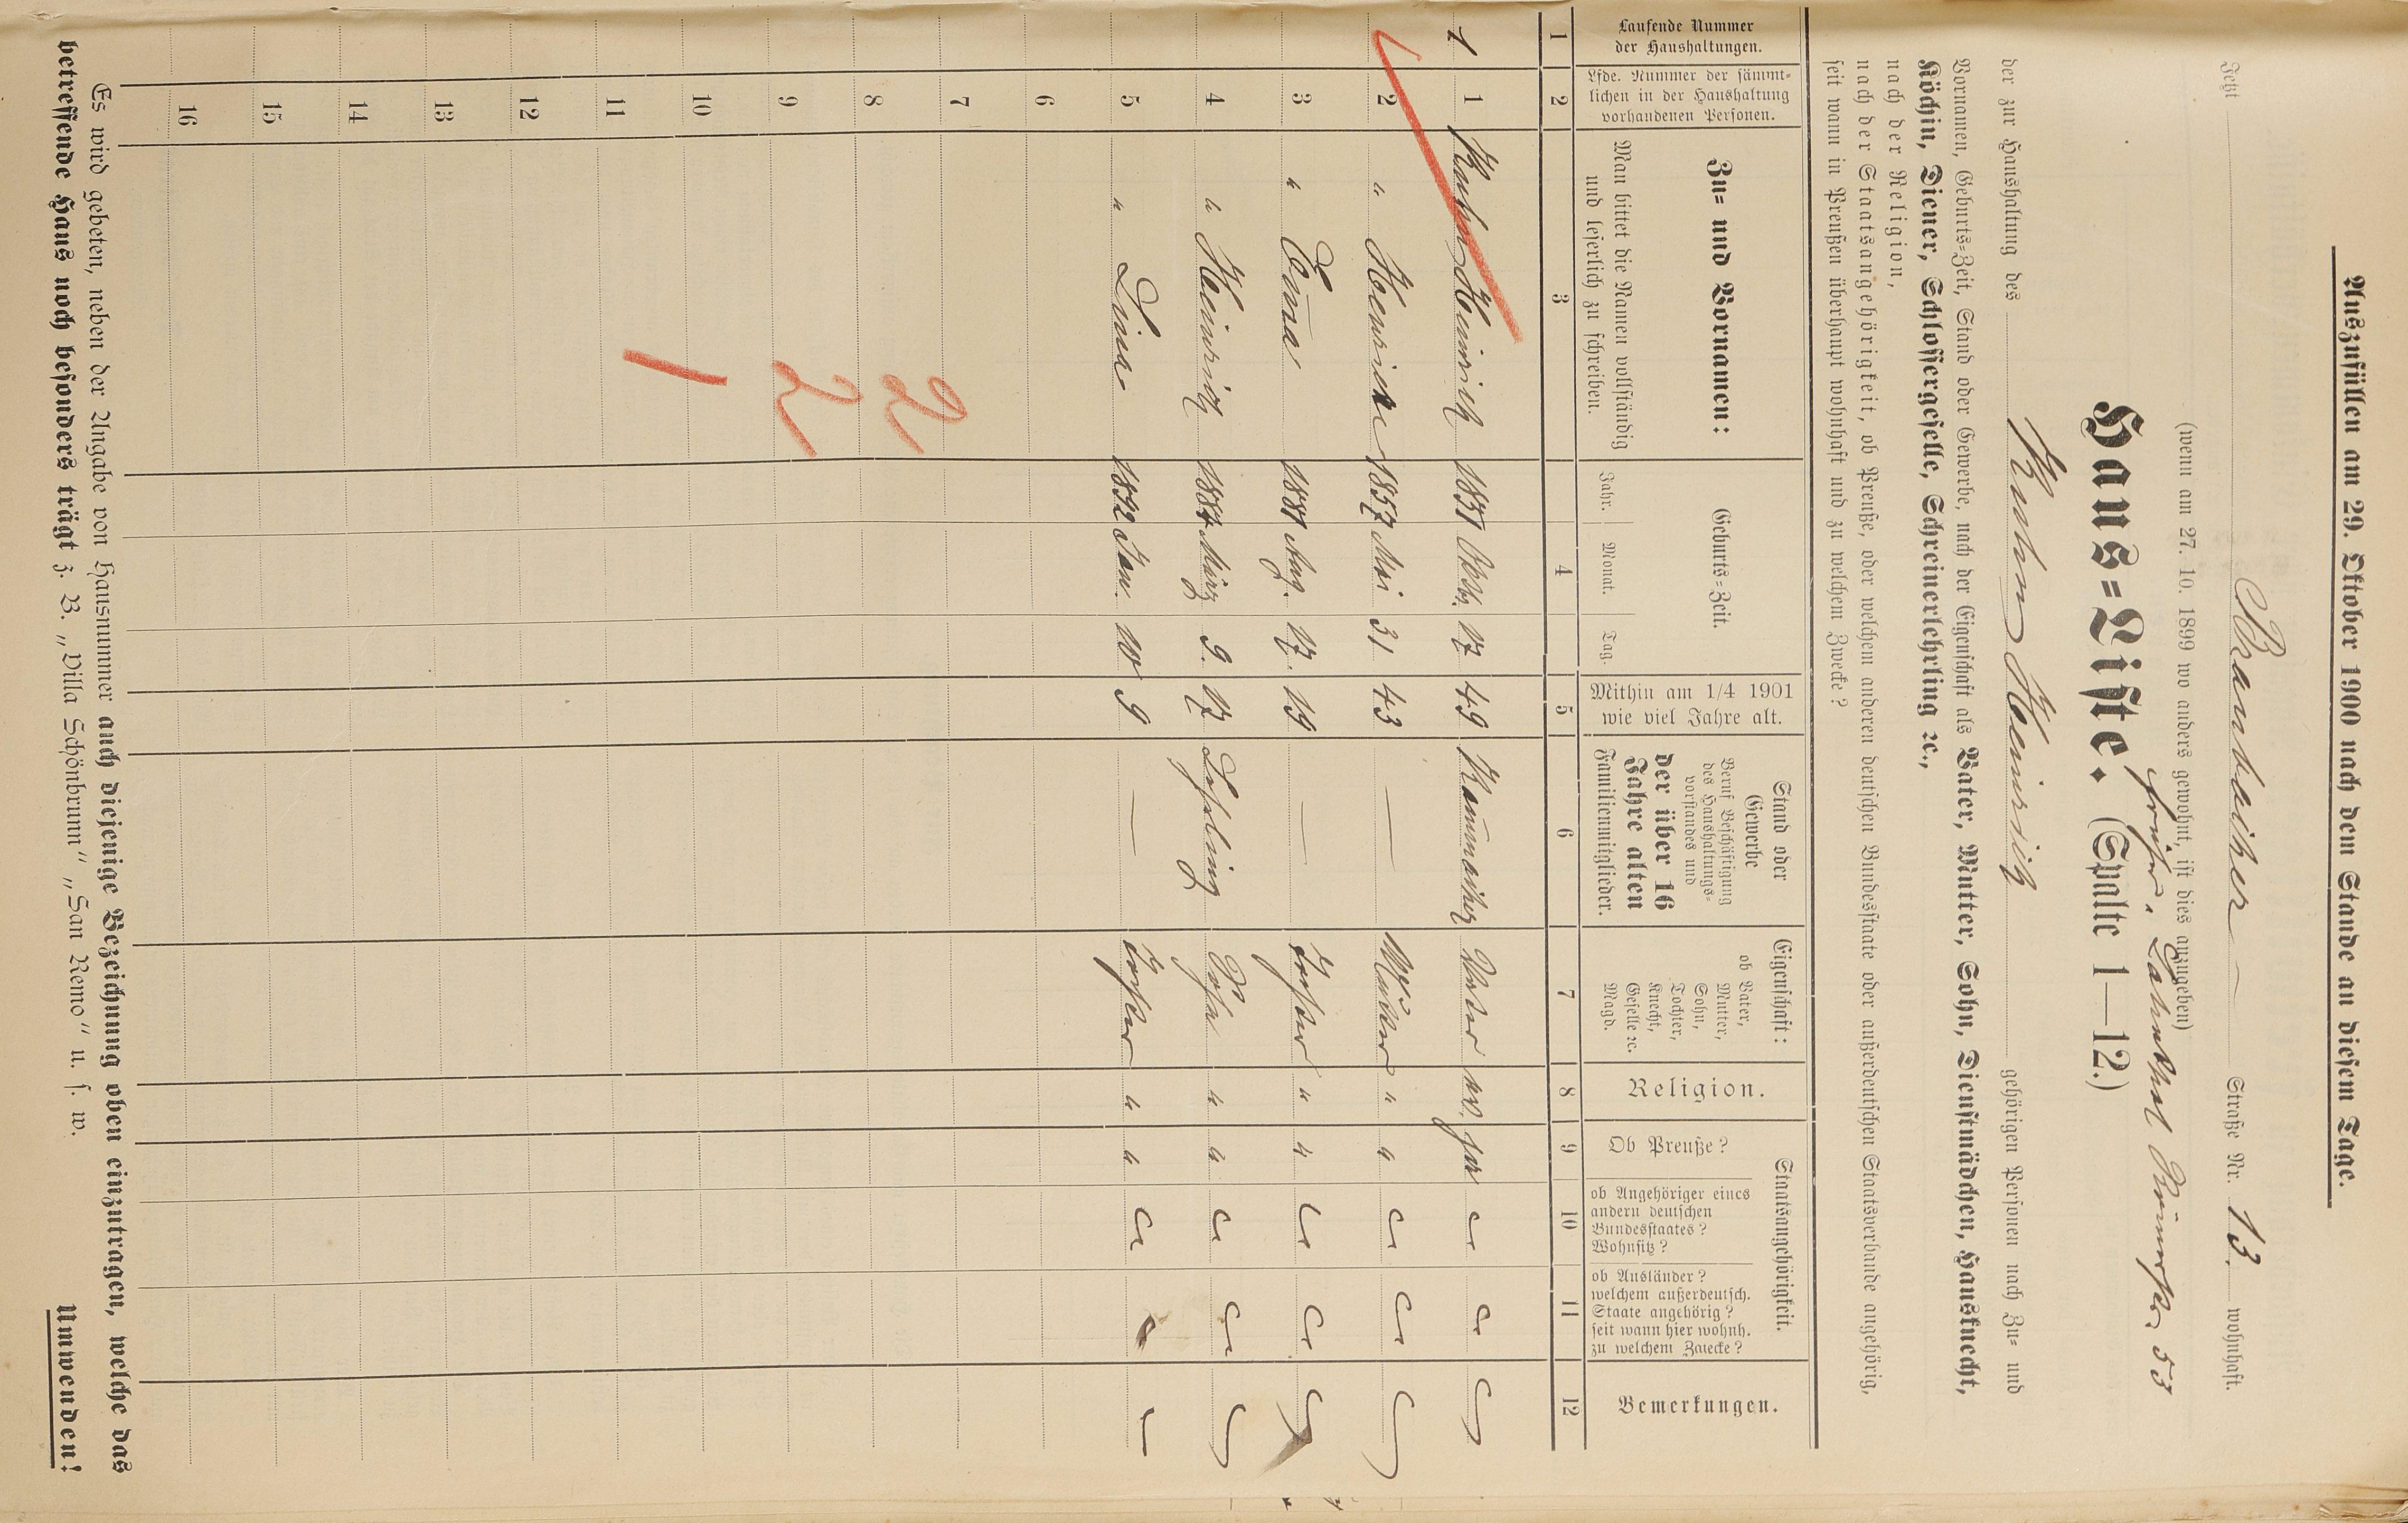 Auszufüllen am 29. Oktober 1900 nach dem Stande an diesem Tage.
Jetzt Straße Nr. 13. wohnhaft.
(wenn am 27. 10. 1899 wo anders gewohnt, ist dies anzugeben)
früher, 53
Haus-Liste. (Spalte 1—12.)
der zur Haushaltung des Heinrich gehörigen Personen nach Zu- und
Vornamen, Geburts-Zeit, Stand oder Gewerbe, nach der Eigenschaft als Vater, Mutter, Sohn, Dienstmädchen, Hausknecht,
Köchin, Diener, Schlossergeselle, Schreinerlehrling ꝛc.,
nach der Religion,
nach der Staatsangehörigkeit, ob Preuße, oder welchem anderen deutschen Bundesstaate oder außerdeutschen Staatsverbande angehörig,
seit wann in Preußen überhaupt wohnhaft und zu welchem Zwecke?
Laufende Nummer
der Haushaltungen.
Lfde. Nummer der sämmt-
lichen in der Haushaltung
vorhandenen Personen.
Zu- und Vornamen:
Man bittet die Namen vollständig
und leserlich zu schreiben.
Geburts-Zeit.
Jahr. Monat. Tag.
Mithin am 1/4 1901
wie viel Jahre alt.
Stand oder
Gewerbe
Beruf Beschäftigung
des Haushaltungs-
vorstandes und
der über 16
Jahre alten
Familienmitglieder.
Eigenschaft:
ob Vater,
Mutter,
Sohn,
Tochter,
Knecht,
Geselle ꝛc.
Magd.
Religion.
Staatsangehörigkeit.
Ob Preuße?
ob Angehöriger eines
andern deutschen
Bundesstaates?
Wohnsitz?
ob Ausländer?
welchem außerdeutsch.
Staate angehörig?
seit wann hier wohnh.
zu welchem Zwecke?
Bemerkungen.
1 2 3 4 5 6 7 8 9 10 11 12
1 1 Heinrich 1851 17 49 Vater ev. ja
2 " 1857 Mai 31 43 — Mutter " "
3 " Emma 1881 Aug. 17. 19 — Tochter " "
4 " Heinrich 1884 März 9. 17 Lehrling Sohn " "
5 " Lina 1892 Jan. 10 9 — Tochter " "
6
7
8 2
9 2
10
11
12
13
14
15
16
Es wird gebeten, neben der Angabe von Hausnummer auch diejenige Bezeichnung oben einzutragen, welche das
betreffende Haus noch besonders trägt z. B. „Villa Schönbrunn" „San Remo" u. s. w.
Umwenden!